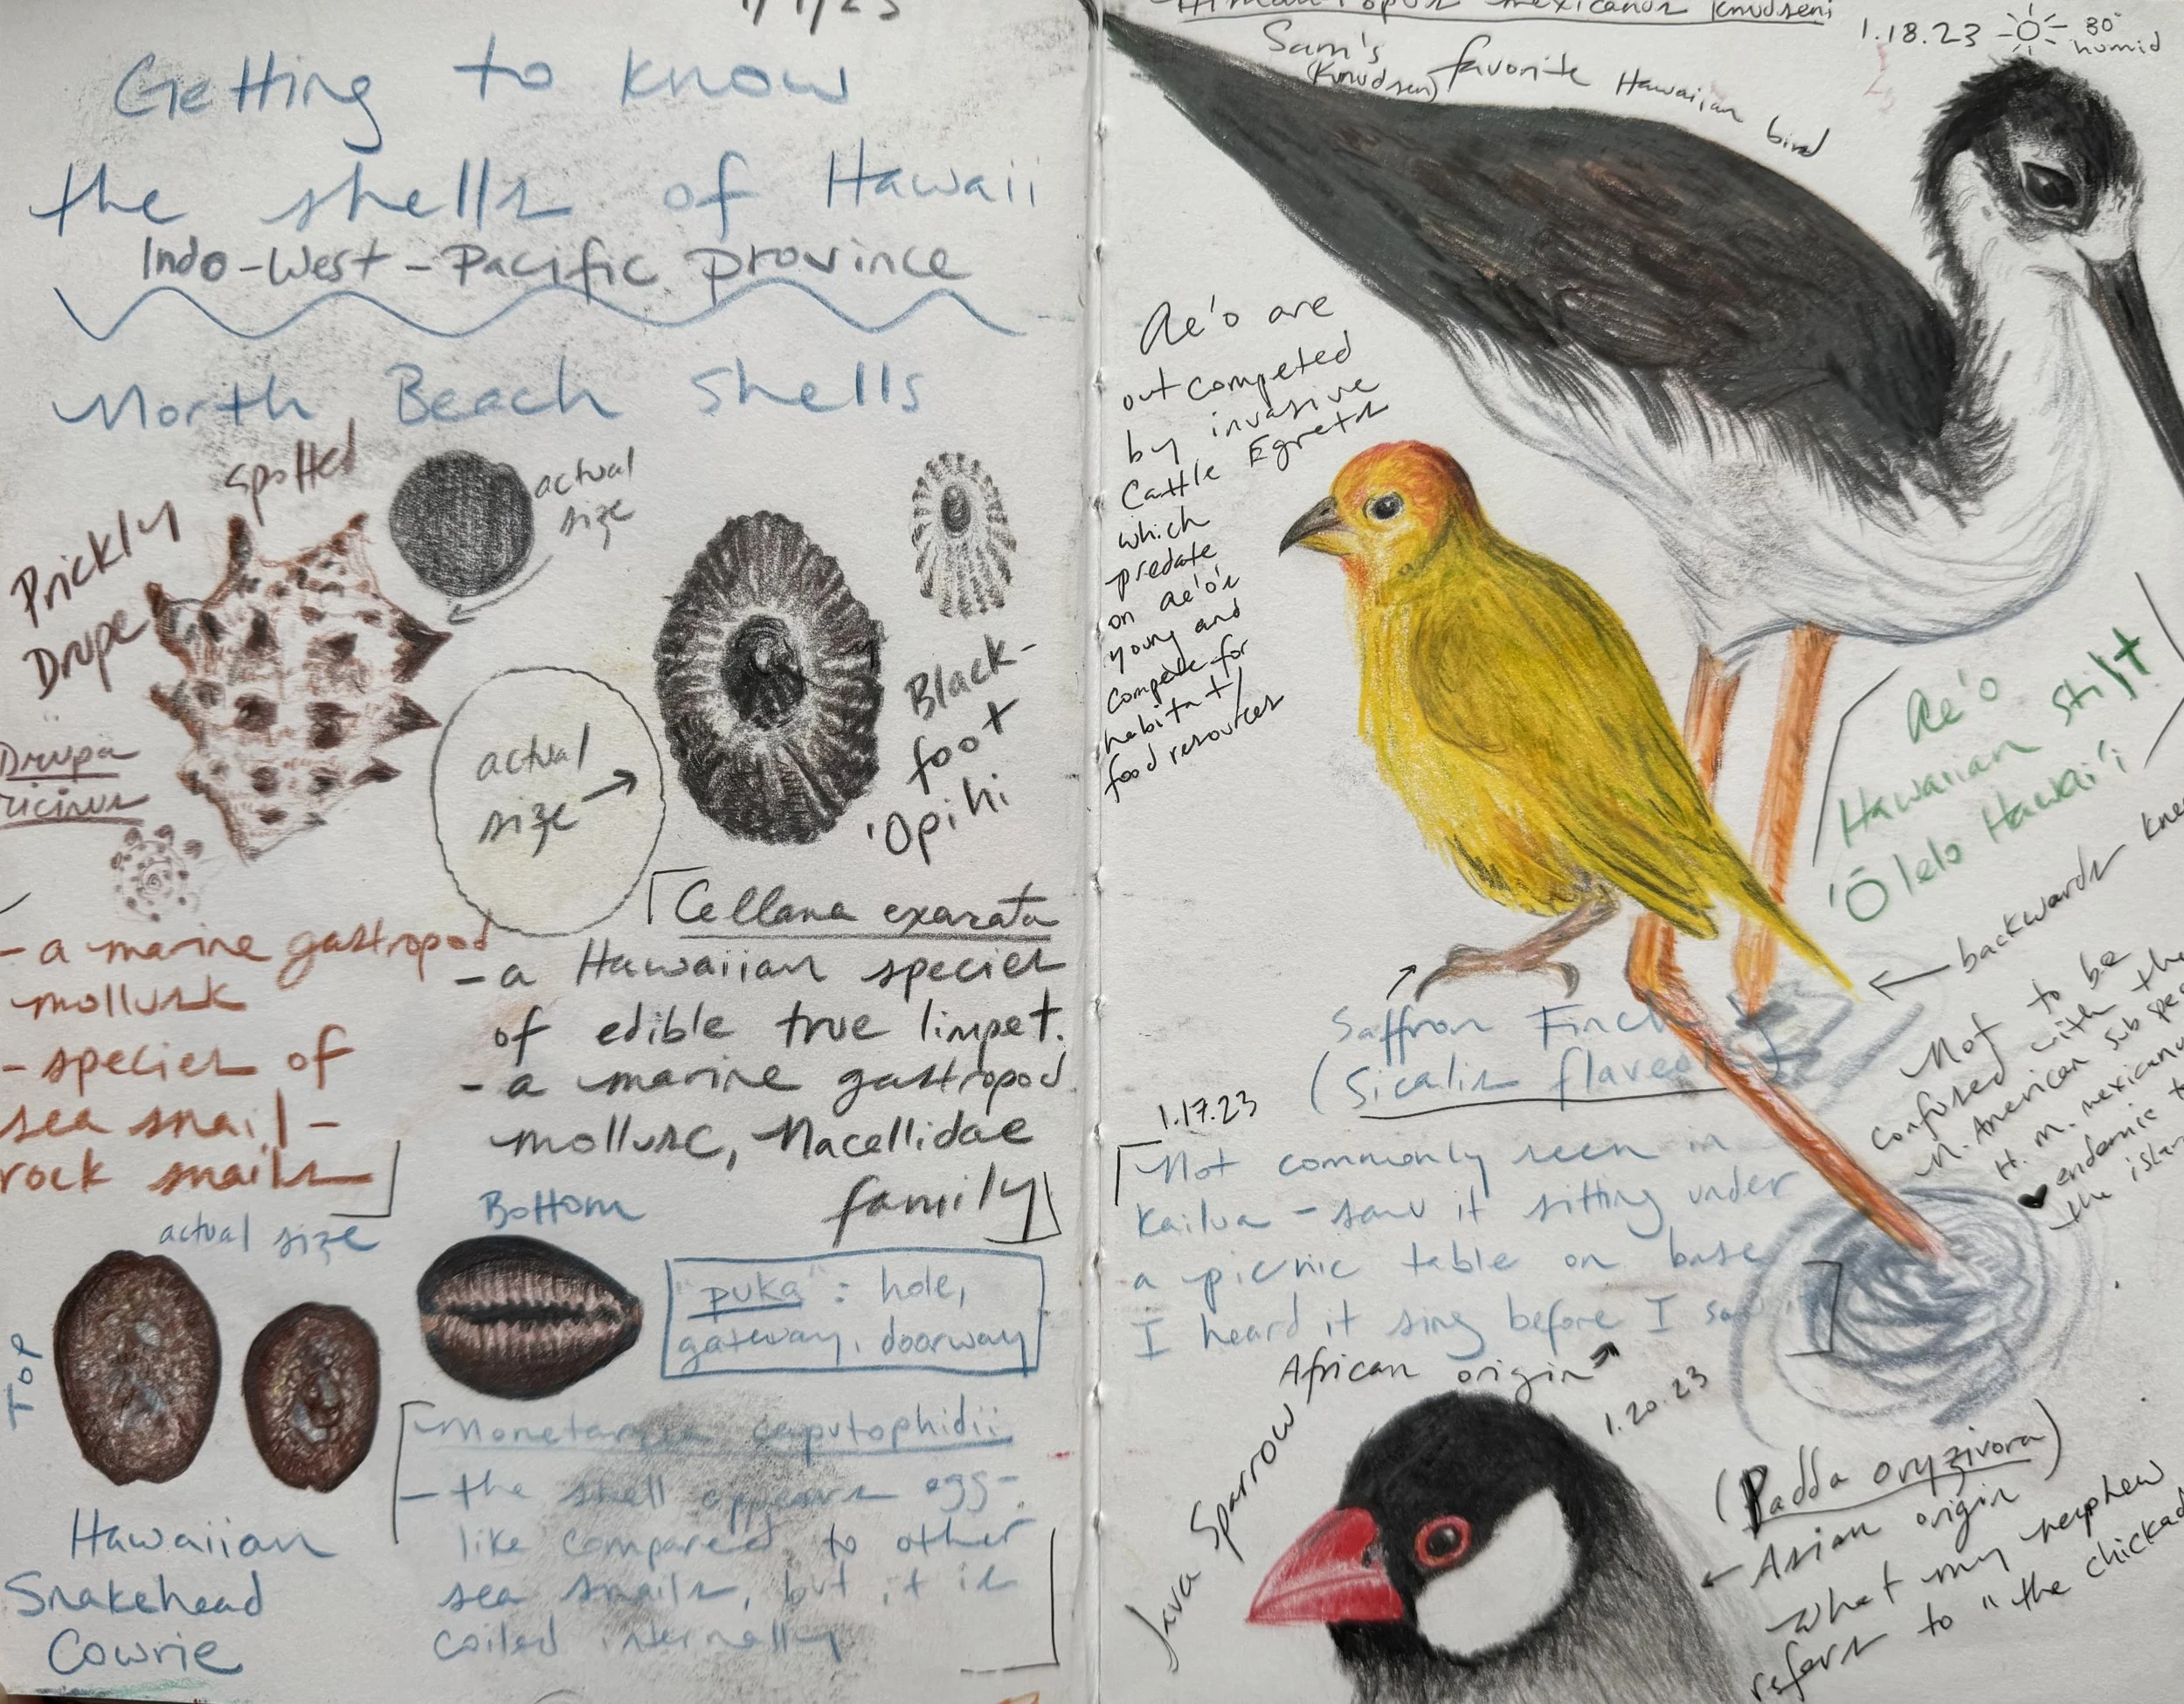 Getting to know
the shells of Hawaii
Indo-West-Pacific province
North Beach Shells
Prickly Spotted
Drupe
Drupa
ricinus
actual
size
- a marine gastropod
mollusk
- species of
sea snail -
rock snails
actual
size →
Black-
foot
'Opihi
Cellana exarata
- a Hawaiian species
of edible true limpet.
- a marine gastropod
mollusc, Nacellidae
family
actual size
Bottom
TOP
"puka": hole,
gateway, doorway
Hawaiian
Snakehead
Cowrie
caputophidii
- the shell appears egg-
like compared to other
sea snails, but it is
coiled internally
Himantopus mexicanus knudseni
1.18.23
80°
humid
Sam's favorite Hawaiian bird
(Knudsen)
Ae'o are
outcompeted
by invasive
Cattle Egrets
which
predate
on ae'o's
young and
compete for
habitat/
food resources
Ae'o
Hawaiian stilt
'Ōlelo Hawai'i
← backwards
Not to be
confused with the
N. American sub
H. m.
♥ endemic
the
Saffron Finch
(Sicalis
1.17.23
Not commonly seen in
Kailua - saw it sitting under
a picnic table on base
I heard it sing before I saw it
African origin
1.20.23
Java Sparrow
(Padda oryzivora)
← Asian origin
What my nephew
refers to "the